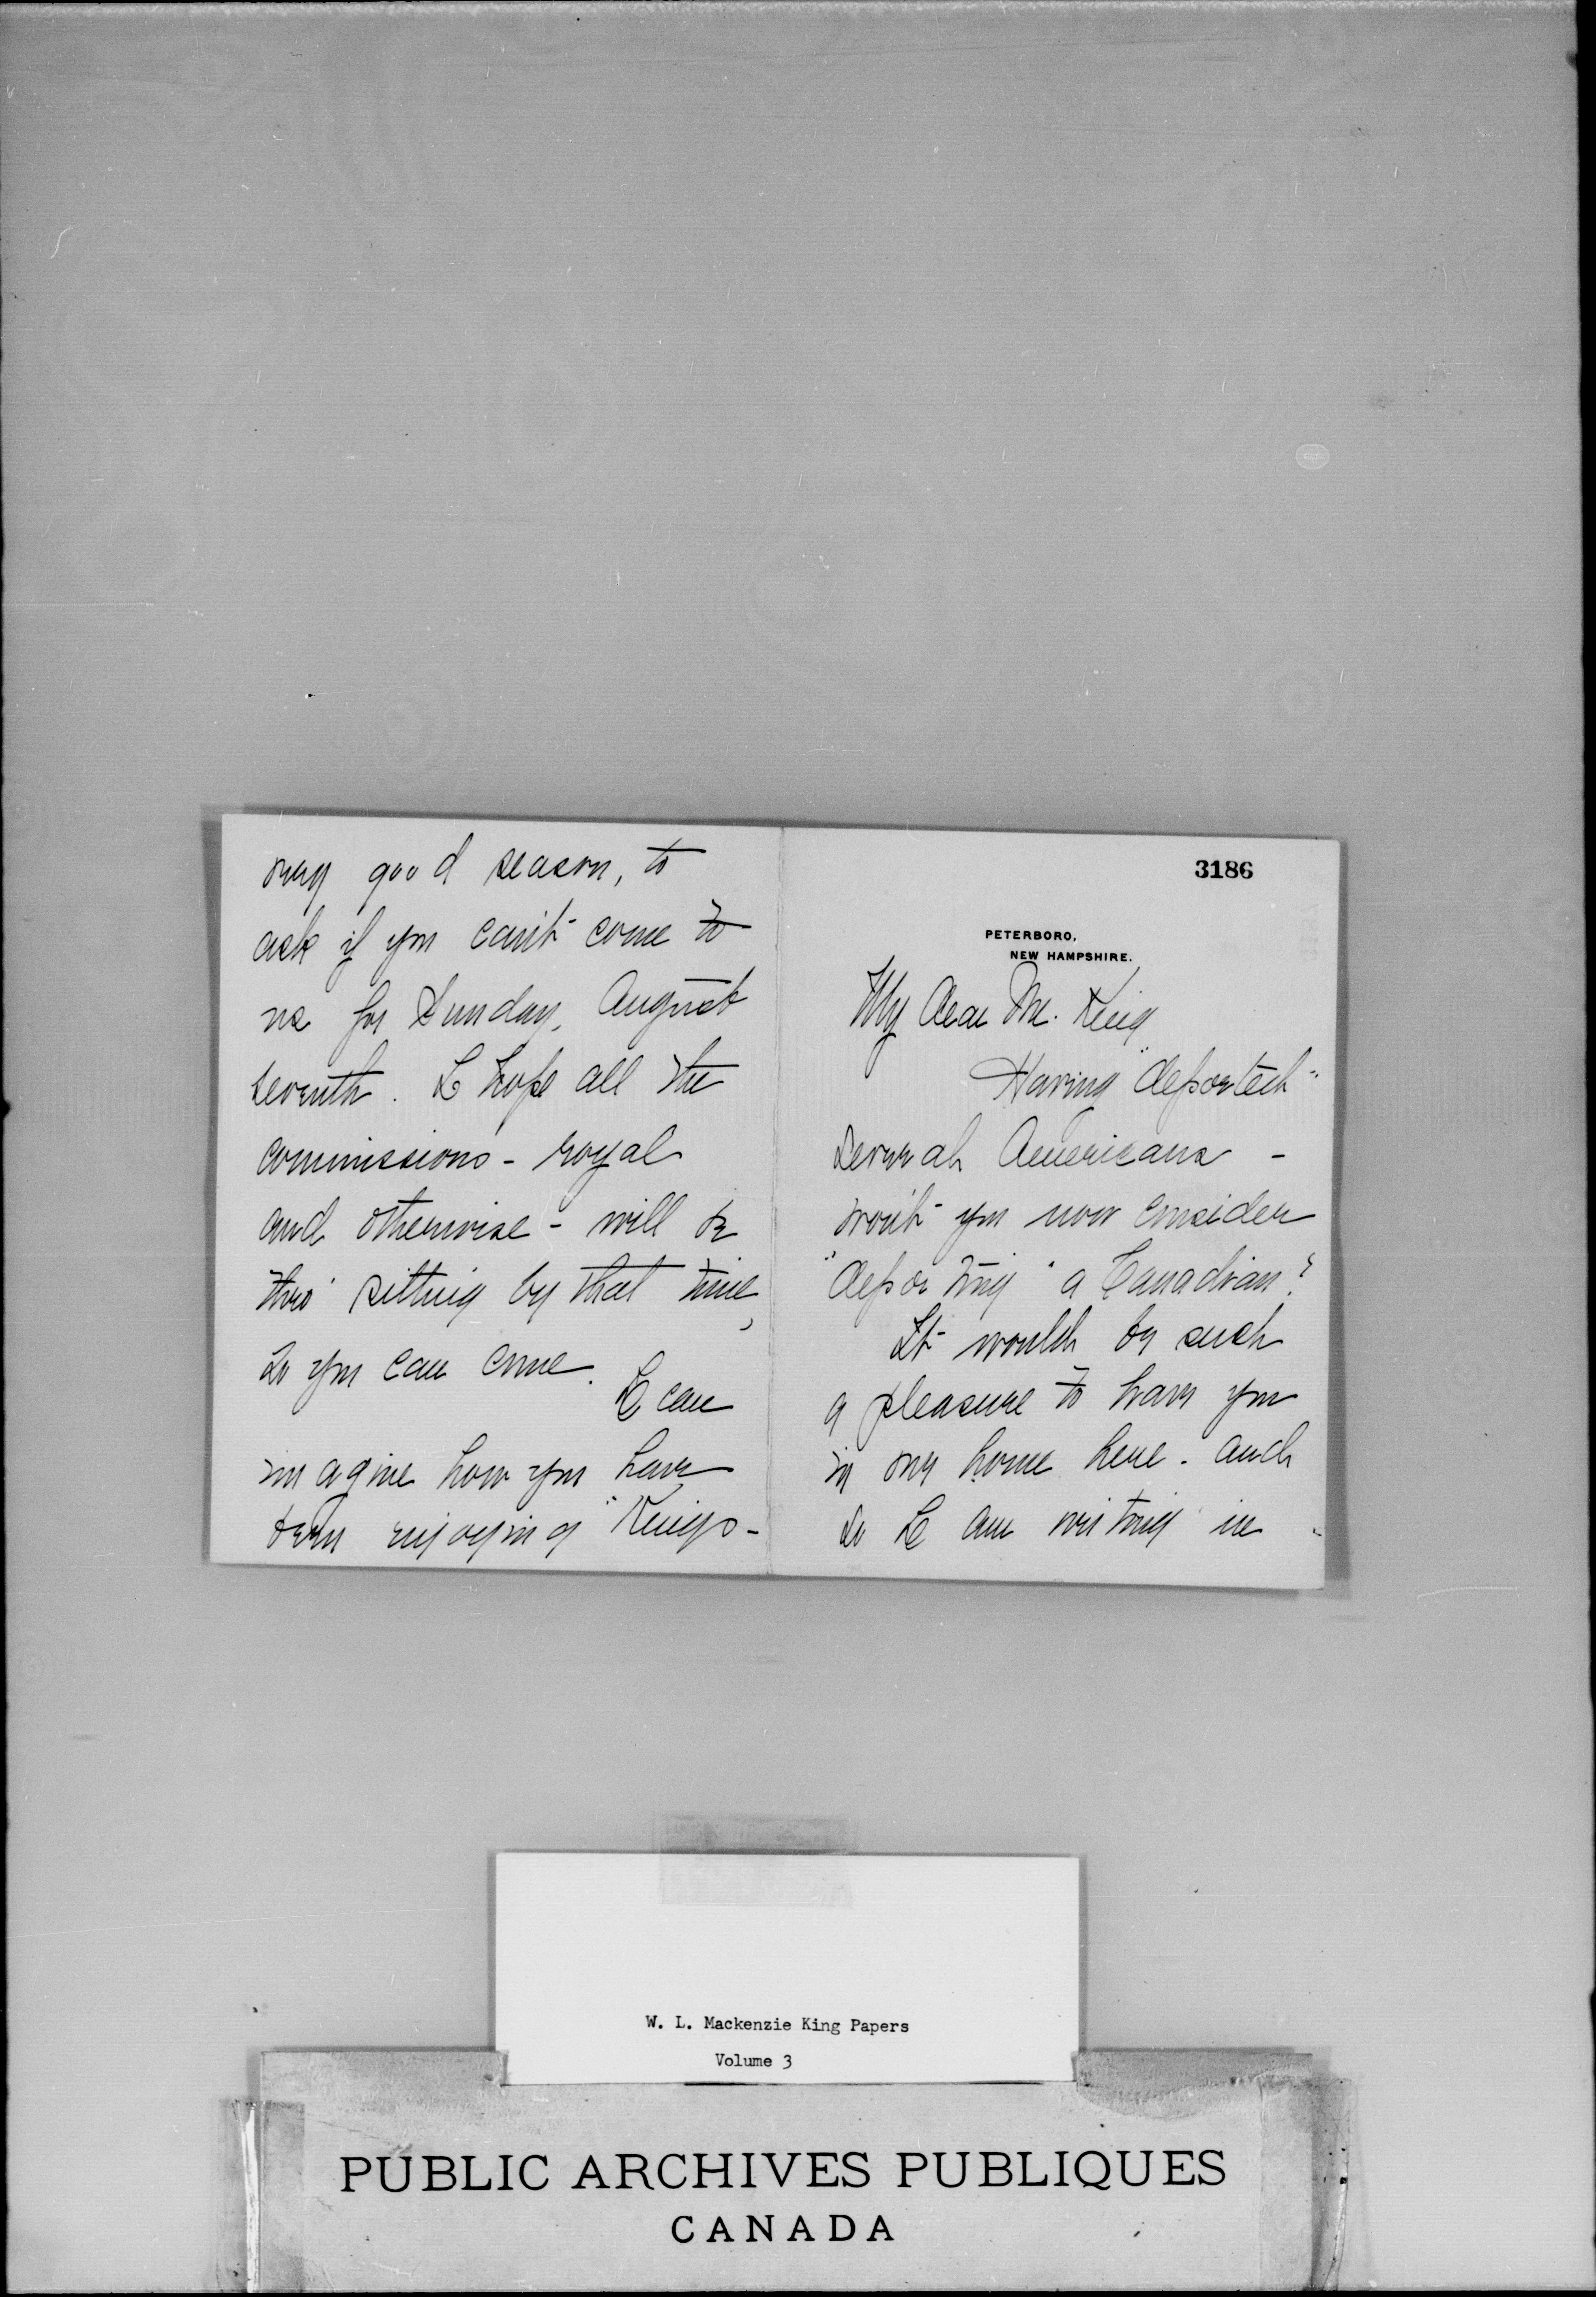 3186
PETERBORO,
NEW HAMPSHIRE.
My dear Mr. King
Having "deported"
several Americans -
won't you now consider
"deporting" a Canadian?
It would be such
a pleasure to have you
in our home here - and
so I am writing in
very good season, to
ask if you can't come to
us for Sunday, August
seventh. I hope all the
commissions - royal
and otherwise - will be
thro' sitting by that time,
so you can come.
I can
imagine how you have
been enjoying "Kings-
W. L. Mackenzie King Papers
Volume 3
PUBLIC ARCHIVES PUBLIQUES
CANADA